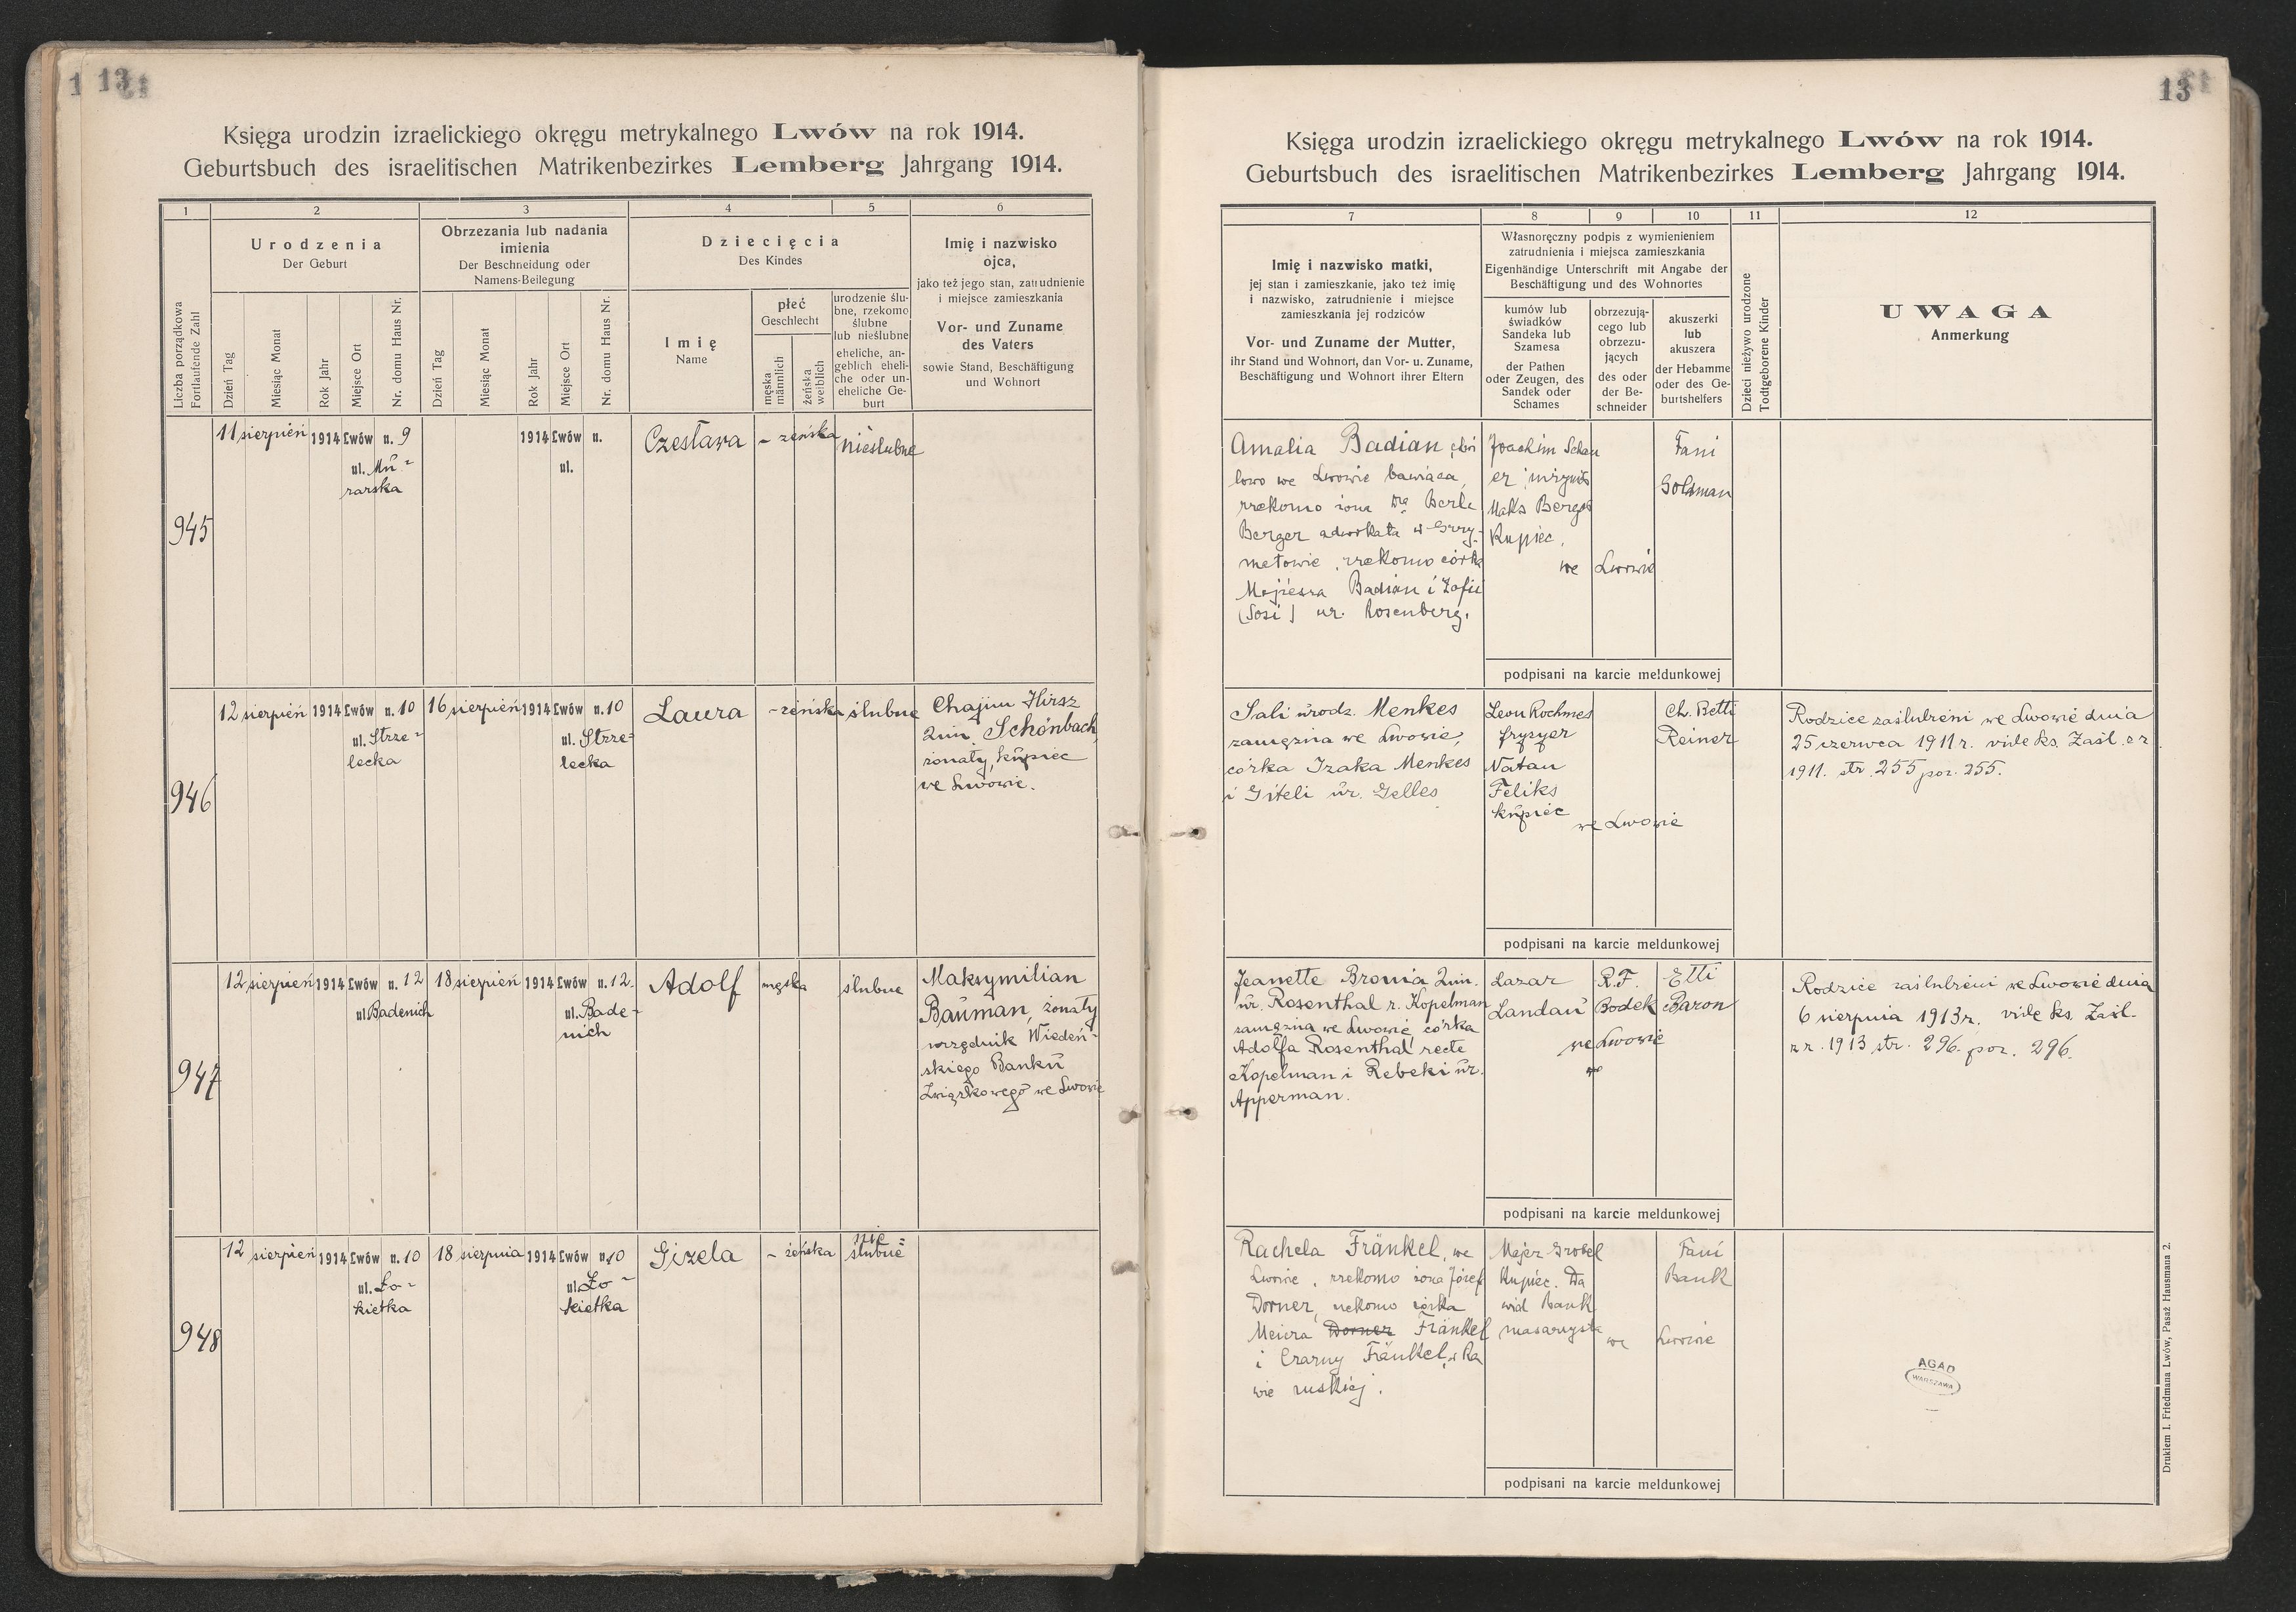 13
Księga urodzin izraelickiego okręgu metrykalnego Lwów na rok 1914.
Geburtsbuch des israelitischen Matrikenbezirkes Lemberg Jahrgang 1914.
1 2 3 4 5 6
Liczba porządkowa
Fortlaufende Zahl
Urodzenia
Der Geburt
Dzień Tag
Miesiąc Monat
Rok Jahr
Miejsce Ort
Nr. domu Haus Nr.
Obrzezania lub nadania
imienia
Der Beschneidung oder
Namens-Beilegung
Dzień Tag
Miesiąc Monat
Rok Jahr
Miejsce Ort
Nr. domu Haus Nr.
Dziecięcia
Des Kindes
Imię
Name
płeć
Geschlecht
męska
männlich
żeńska
weiblich
urodzenie ślu-
bne, rzekomo
ślubne
lub nieślubne
eheliche, an-
geblich eheli-
che oder un-
eheliche Ge-
burt
Imię i nazwisko
ojca,
jako też jego stan, zatrudnienie
i miejsce zamieszkania
Vor- und Zuname
des Vaters
sowie Stand, Beschäftigung
und Wohnort
945
11 sierpień 1914 Lwów n. 9
ul. Mu-
rarska
1914 Lwów n.
ul.
Czesława
- żeńska
nieślubne
946
12 sierpień 1914 Lwów n. 10
ul. Strze-
lecka
16 sierpień 1914 Lwów n. 10
ul. Strze-
lecka
Laura
- żeńska
ślubne
Chajim Hirsz
2im. Schönbach,
żonaty, kupiec
we Lwowie.
947
12 sierpień 1914 Lwów n. 12
ul. Badenich
18 sierpień 1914 Lwów n. 12.
ul. Bade-
nich
Adolf
męska
ślubne
Maksymilian
Bauman, żonaty
urzędnik Wiedeń-
skiego Banku
Związkowego we Lwowie
948
12 sierpień 1914 Lwów n. 10
ul. Ło-
kietka
18 sierpnia 1914 Lwów n. 10
ul. Ło-
kietka
Gizela
- żeńska
nie-
ślubne
13
Księga urodzin izraelickiego okręgu metrykalnego Lwów na rok 1914.
Geburtsbuch des israelitischen Matrikenbezirkes Lemberg Jahrgang 1914.
7 8 9 10 11 12
Imię i nazwisko matki,
jej stan i zamieszkanie, jako też imię
i nazwisko, zatrudnienie i miejsce
zamieszkania jej rodziców
Vor- und Zuname der Mutter,
ihr Stand und Wohnort, dan Vor- u. Zuname,
Beschäftigung und Wohnort ihrer Eltern
Własnoręczny podpis z wymienieniem
zatrudnienia i miejsca zamieszkania
Eigenhändige Unterschrift mit Angabe der
Beschäftigung und des Wohnortes
kumów lub
świadków
Sandeka lub
Szamesa
der Pathen
oder Zeugen, des
Sandek oder
Schames
obrzezują-
cego lub
obrzezu-
jących
des oder
der Be-
schneider
akuszerki
lub
akuszera
der Hebamme
oder des Ge-
burtshelfers
Dzieci nieżywo urodzone
Todtgeborene Kinder
UWAGA
Anmerkung
Amalia Badian, chwi
lowo we Lwowie bawiąca,
rzekomo żona Dra Berla
Berger adwokata w Grzy-
małowie, rzekomo córka
Mojżesza Badian i Zofii
(Sosi) ur. Rosenberg.
Joachim Schau
er
Maks Berger
Kupiec.
we Lwowie
Fani
Goldman
podpisani na karcie meldunkowej
Sali urodz. Menkes
zamężna we Lwowie,
córka Izaka Menkes
i Giteli ur. Gelles
Leon Rochmes
fryzyer
Natan
Feliks
kupiec
we Lwowie
Ch. Betti
Reiner
Rodzice zaślubieni we Lwowie dnia
25 czerwca 1911 r. vide ks. Zaśl. e r.
1911. str. 255 poz. 255.
podpisani na karcie meldunkowej
Jeanette Bronia 2im.
ur. Rosenthal r. Kopelman
zamężna we Lwowie córka
Adolfa Rosenthal recte
Kopelman i Rebeki ur.
Apperman.
Lazar
Landau
R.F.
Bodek
we Lwowie
Etti
Baron
Rodzice zaślubieni we Lwowie dnia
6 sierpnia 1913 r. vide ks. Zaśl.
z r. 1913 str. 296. poz. 296.
podpisani na karcie meldunkowej
Rachela Fränkel, we
Lwowie, rzekomo żona Józef
Dorner, rzekomo córka
Meiera Dorner Fränkel
i Czarny Fränkel, w Ra
wie ruskiej.
Majer Grobel
Kupiec. Da
wid Bank
masarzysta
we Lwowie
Fani
Bank
podpisani na karcie meldunkowej
AGAD
WARSZAWA
Drukiem I. Friedmana Lwów, Pasaż Hausmana 2.